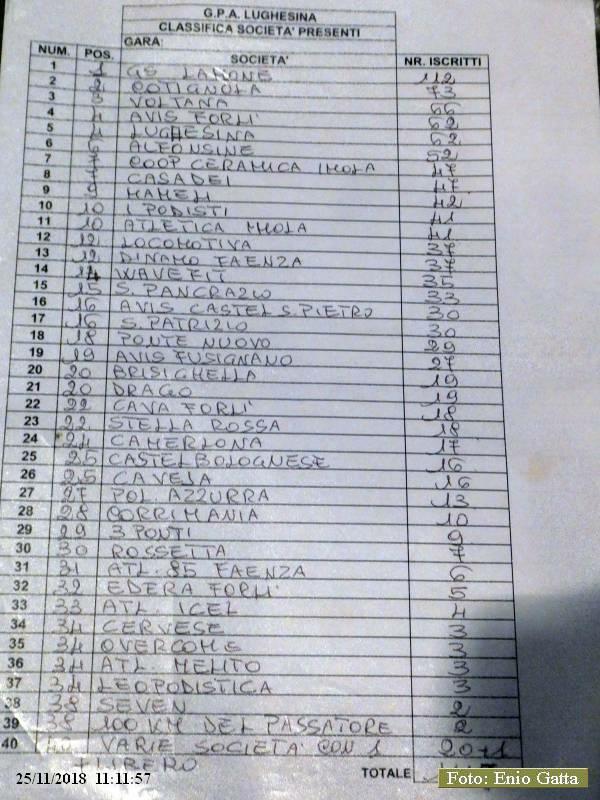 G.P.A. LUGHESINA
CLASSIFICA SOCIETA' PRESENTI
GARA:
NUM. POS. SOCIETA' NR. ISCRITTI
1 1 GS LAMONE 112
2 2 COTIGNOLA 73
3 3 VOLTANA 66
4 4 AVIS FORLI' 62
5 4 LUGHESINA 62
6 6 ALFONSINE 52
7 7 COOP CERAMICA IMOLA 47
8 7 CASADEI 47
9 9 MAMELI 42
10 10 I PODISTI 41
11 10 ATLETICA IMOLA 41
12 12 LOCOMOTIVA 37
13 12 DINAMO FAENZA 37
14 14 WAVE FIT 35
15 15 S. PANCRAZIO 33
16 16 AVIS CASTEL S. PIETRO 30
17 16 S. PATRIZIO 30
18 18 PONTE NUOVO 29
19 19 AVIS FUSIGNANO 27
20 20 BRISIGHELLA 19
21 20 DRAGO 19
22 22 CAVA FORLI' 18
23 22 STELLA ROSSA 18
24 24 CAMERLONA 17
25 25 CASTELBOLOGNESE 16
26 25 CAVEJA 16
27 27 POL. AZZURRA 13
28 28 CORRIMANIA 10
29 29 3 PONTI 9
30 30 ROSSETTA 7
31 31 ATL. 85 FAENZA 6
32 32 EDERA FORLI' 5
33 33 ATL. ICEL 4
34 34 CERVESE 3
35 34 OVERCOME 3
36 34 ATL. MELITO 3
37 34 LEOPODISTICA 3
38 38 SEVEN 2
39 38 100 KM DEL PASSATORE 2
40 40 VARIE SOCIETA' CON 1 20+1
+ LIBERO
TOTALE
25/11/2018 11:11:57
Foto: Enio Gatta